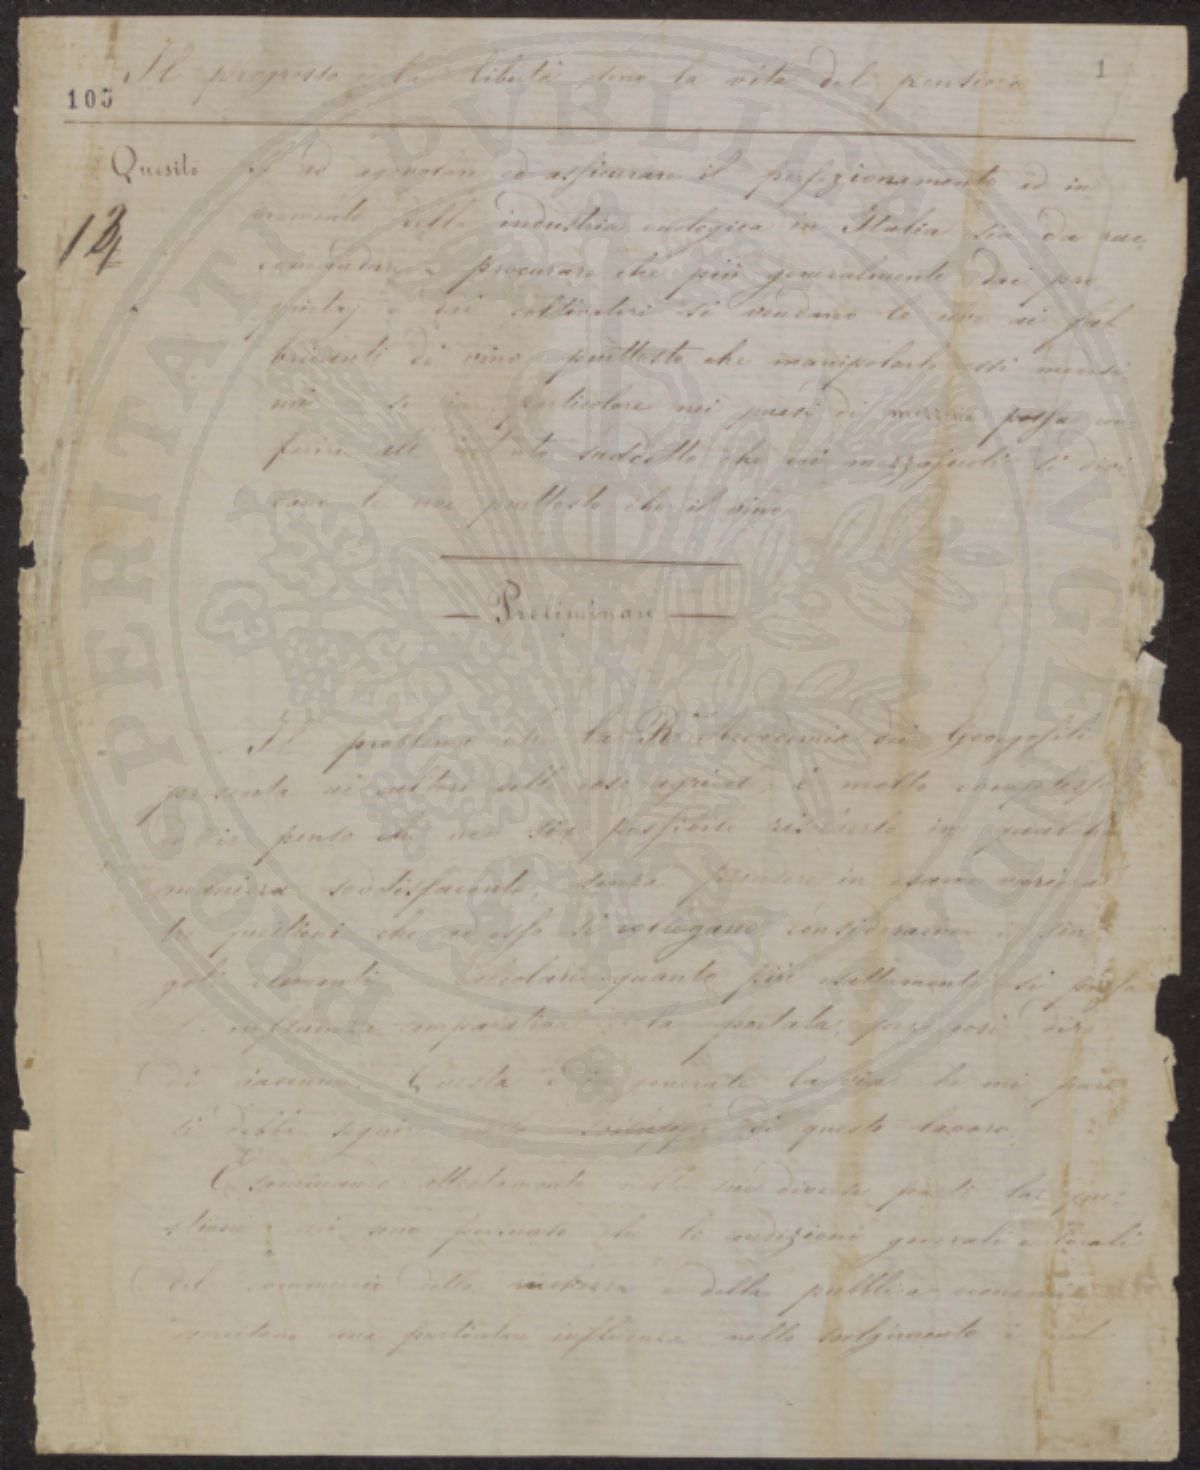 1
Il progresso e la libertà sono la vita del pensiero
105
Quesito Se ad agevolare ed assicurare il perfezionamento ed in
12
cremento della industria enologica in Italia sia da rac
comandare e procurare che più generalmente dai pro
prietarj e dai coltivatori si vendano le uve ai fab
bricanti di vino piuttosto che manipolarle essi medesi
mi e se in particolare nei paesi di mezzeria possa con
ferire all' intento suddetto che coi mezzajuoli si divi
dano le uve piuttosto che il vino
— Preliminare —
Il problema che la R. Accademia dei Georgofili
presenta ai cultori delle cose agricole, è molto complesso
ed io penso che non sia possibile risolverlo in qualche
maniera soddisfacente, senza prendere in esame varie al
tre questioni che ad essa si collegano considerarne i sin
goli elementi calcolare quanto più esattamente si possa
l' influenza comparativa e la portata, per così dire
di ciascuno. Questa è in generale la via che mi pare
si debba seguire nello sviluppo di questo lavoro.
Esaminando attentamente nelle sue diverse parti la que
stione mi sono persuaso che le condizioni generali e locali
del commercio della ricchezza e della pubblica economia
esercitano una particolare influenza nello svolgimento e nel
PROSPERITATI PUBLICAE AUGENDAE